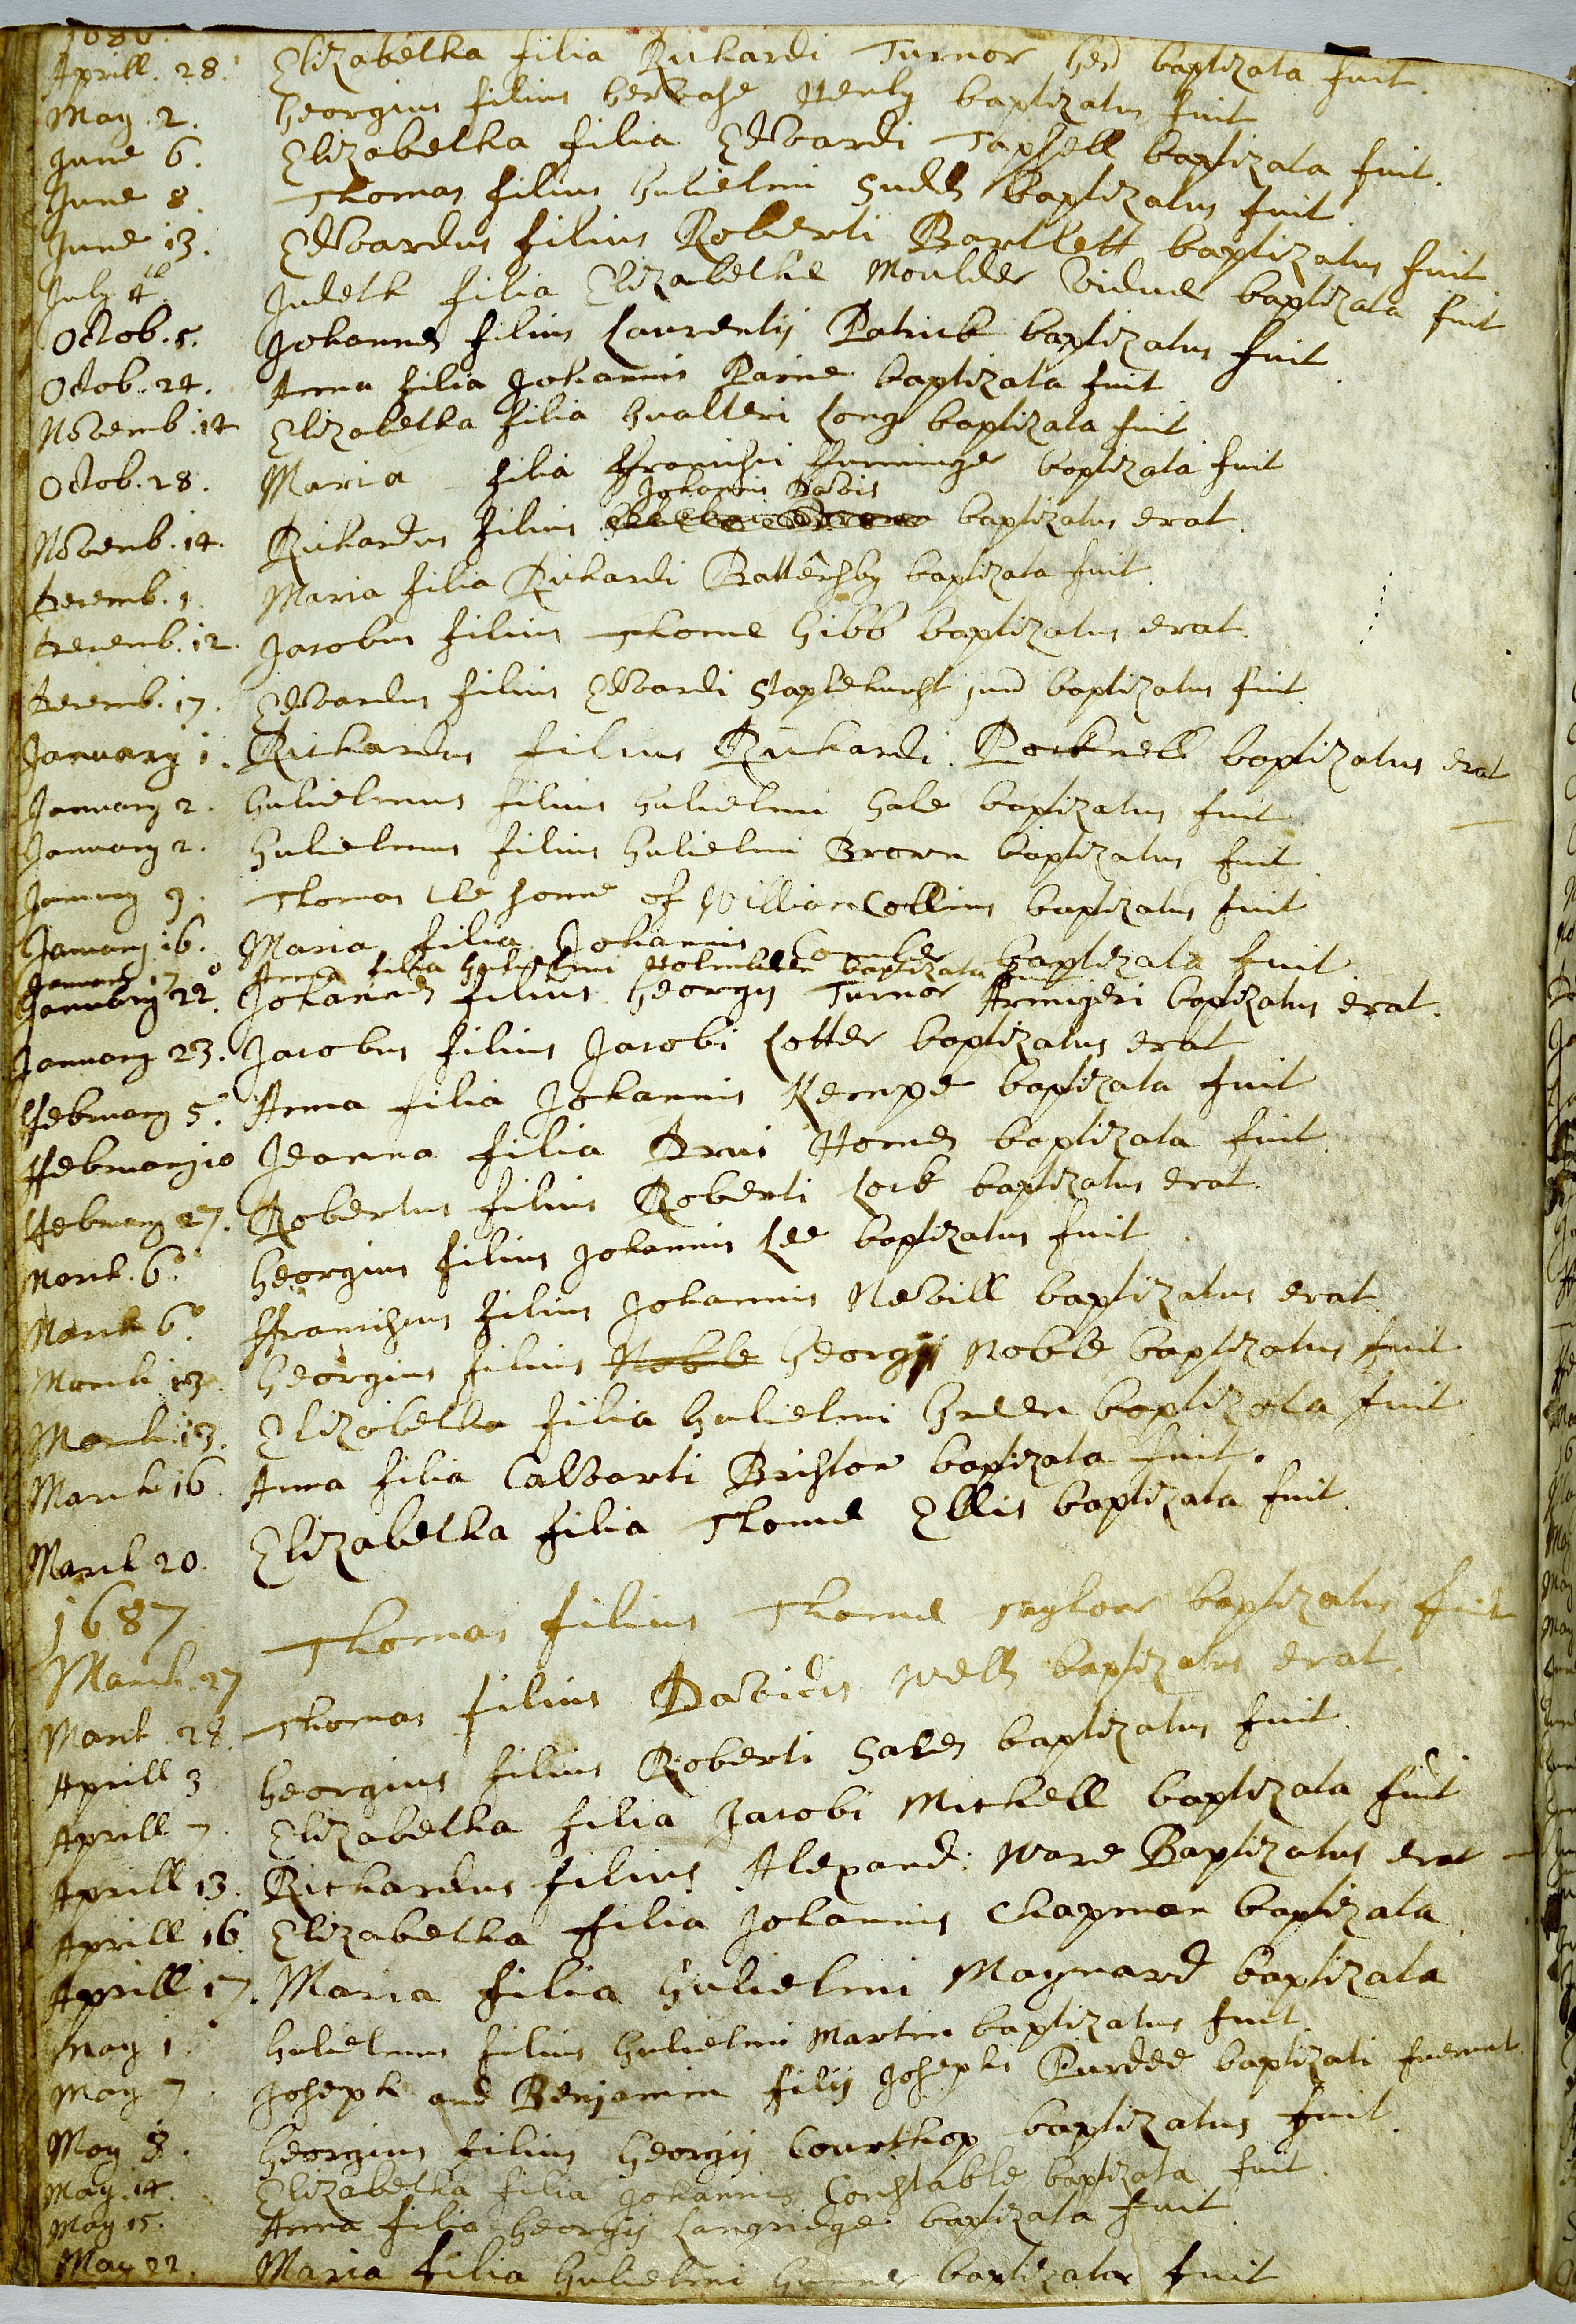 1686.
Aprill. 28. Elizabetha filia Richardi Turnor baptizata fuit.
May. 2. Georgius filius Gervase Henly baptizatus fuit
June 6. Elizabetha filia Edvardi Tapsell baptizata fuit.
June 8. Thomas filius Gulielmi Sudds baptizatus fuit.
June 13. Edvardus filius Roberti Bartlett baptizatus fuit
July 4th Judeth filia Elizabethe Moulder vidue baptizata fuit
Octob. 5. Johannes filius Laurentij Patrick baptizatus fuit.
Octob. 24. Anna filia Johannis Paine baptizata fuit
Novemb. 14 Elizabetha filia Gualteri Long baptizata fuit
Octob. 28. Maria filia ffrancisci ffurminger baptizata fuit
Johannis Davis
Novemb. 14. Richardus filius baptizatus erat.
Decemb. 1. Maria filia Richardi Battershby baptizata fuit.
Decemb. 12. Jacobus filius Thome Gibb baptizatus erat.
Decemb. 17. Edvardus filius Edvardi Staplehurst jun baptizatus fuit.
January 1. Richardus filius Richardi Pocknell baptizatus erat
January 2. Gulielmus filius Gulielmi Gale baptizatus fuit
January 2. Gulielmus filius Gulielmi Brown baptizatus fuit.
January 9. Thomas the sonne of William Collins baptizatus fuit
January 16. Maria filia Johannis Comber baptizata fuit
January 17 Anna filia Gulielmi Holmden baptizata fuit
January 22. Johannes filius Georgij Turnor Armigeri baptizatus erat.
January 23. Jacobus filius Jacobi Lotter baptizatus erat
ffebruary 5. Anna filia Johannis Kempe baptizata fuit
ffebruary 10 Jeanna filia Homes baptizata fuit.
ffebruary 27. Robertus filius Roberti Lock baptizatus erat.
March. 6. Georgius filius Johannis Lee baptizatus fuit.
March 6. ffranciscus filius Johannis Nevill baptizatus erat.
March 13. Georgius filius Noble Georgij Noble baptizatus fuit.
March 13. Elizabetha filia Gulielmi Green baptizata fuit
March 16. Anna filia Calvarti Bristow baptizata fuit.
March 20. Elizabetha filia Thome Ellis baptizata fuit.
1687
March. 27 Thomas filius Thome Taylour baptizatus fuit
March. 28. Thomas filius Davidis Wells baptizatus erat.
Aprill 3 Georgius filius Roberti Gales baptizatus fuit.
Aprill 7. Elizabetha filia Jacobi Michell baptizata fuit
Aprill 13. Richardus filius Alexand: Ware Baptizatus erat
Aprill 16. Elizabetha filia Johannis Chapman baptizata
Aprill 17. Maria filia Gulielmi Maynard baptizata
May 1. Gulielmus filius Gulielmi Martin baptizatus fuit.
May 7. Joseph and Benjamin filij Josephi Purdee baptizati fuerunt
May 8. Georgius filius Georgij Courthop baptizatus fuit.
May. 14. Elizabetha filia Johannis Constable baptizata fuit.
May 15. Anna filia Georgij Langridge baptizata fuit.
May 22. Maria filia Gulielmi baptizata fuit